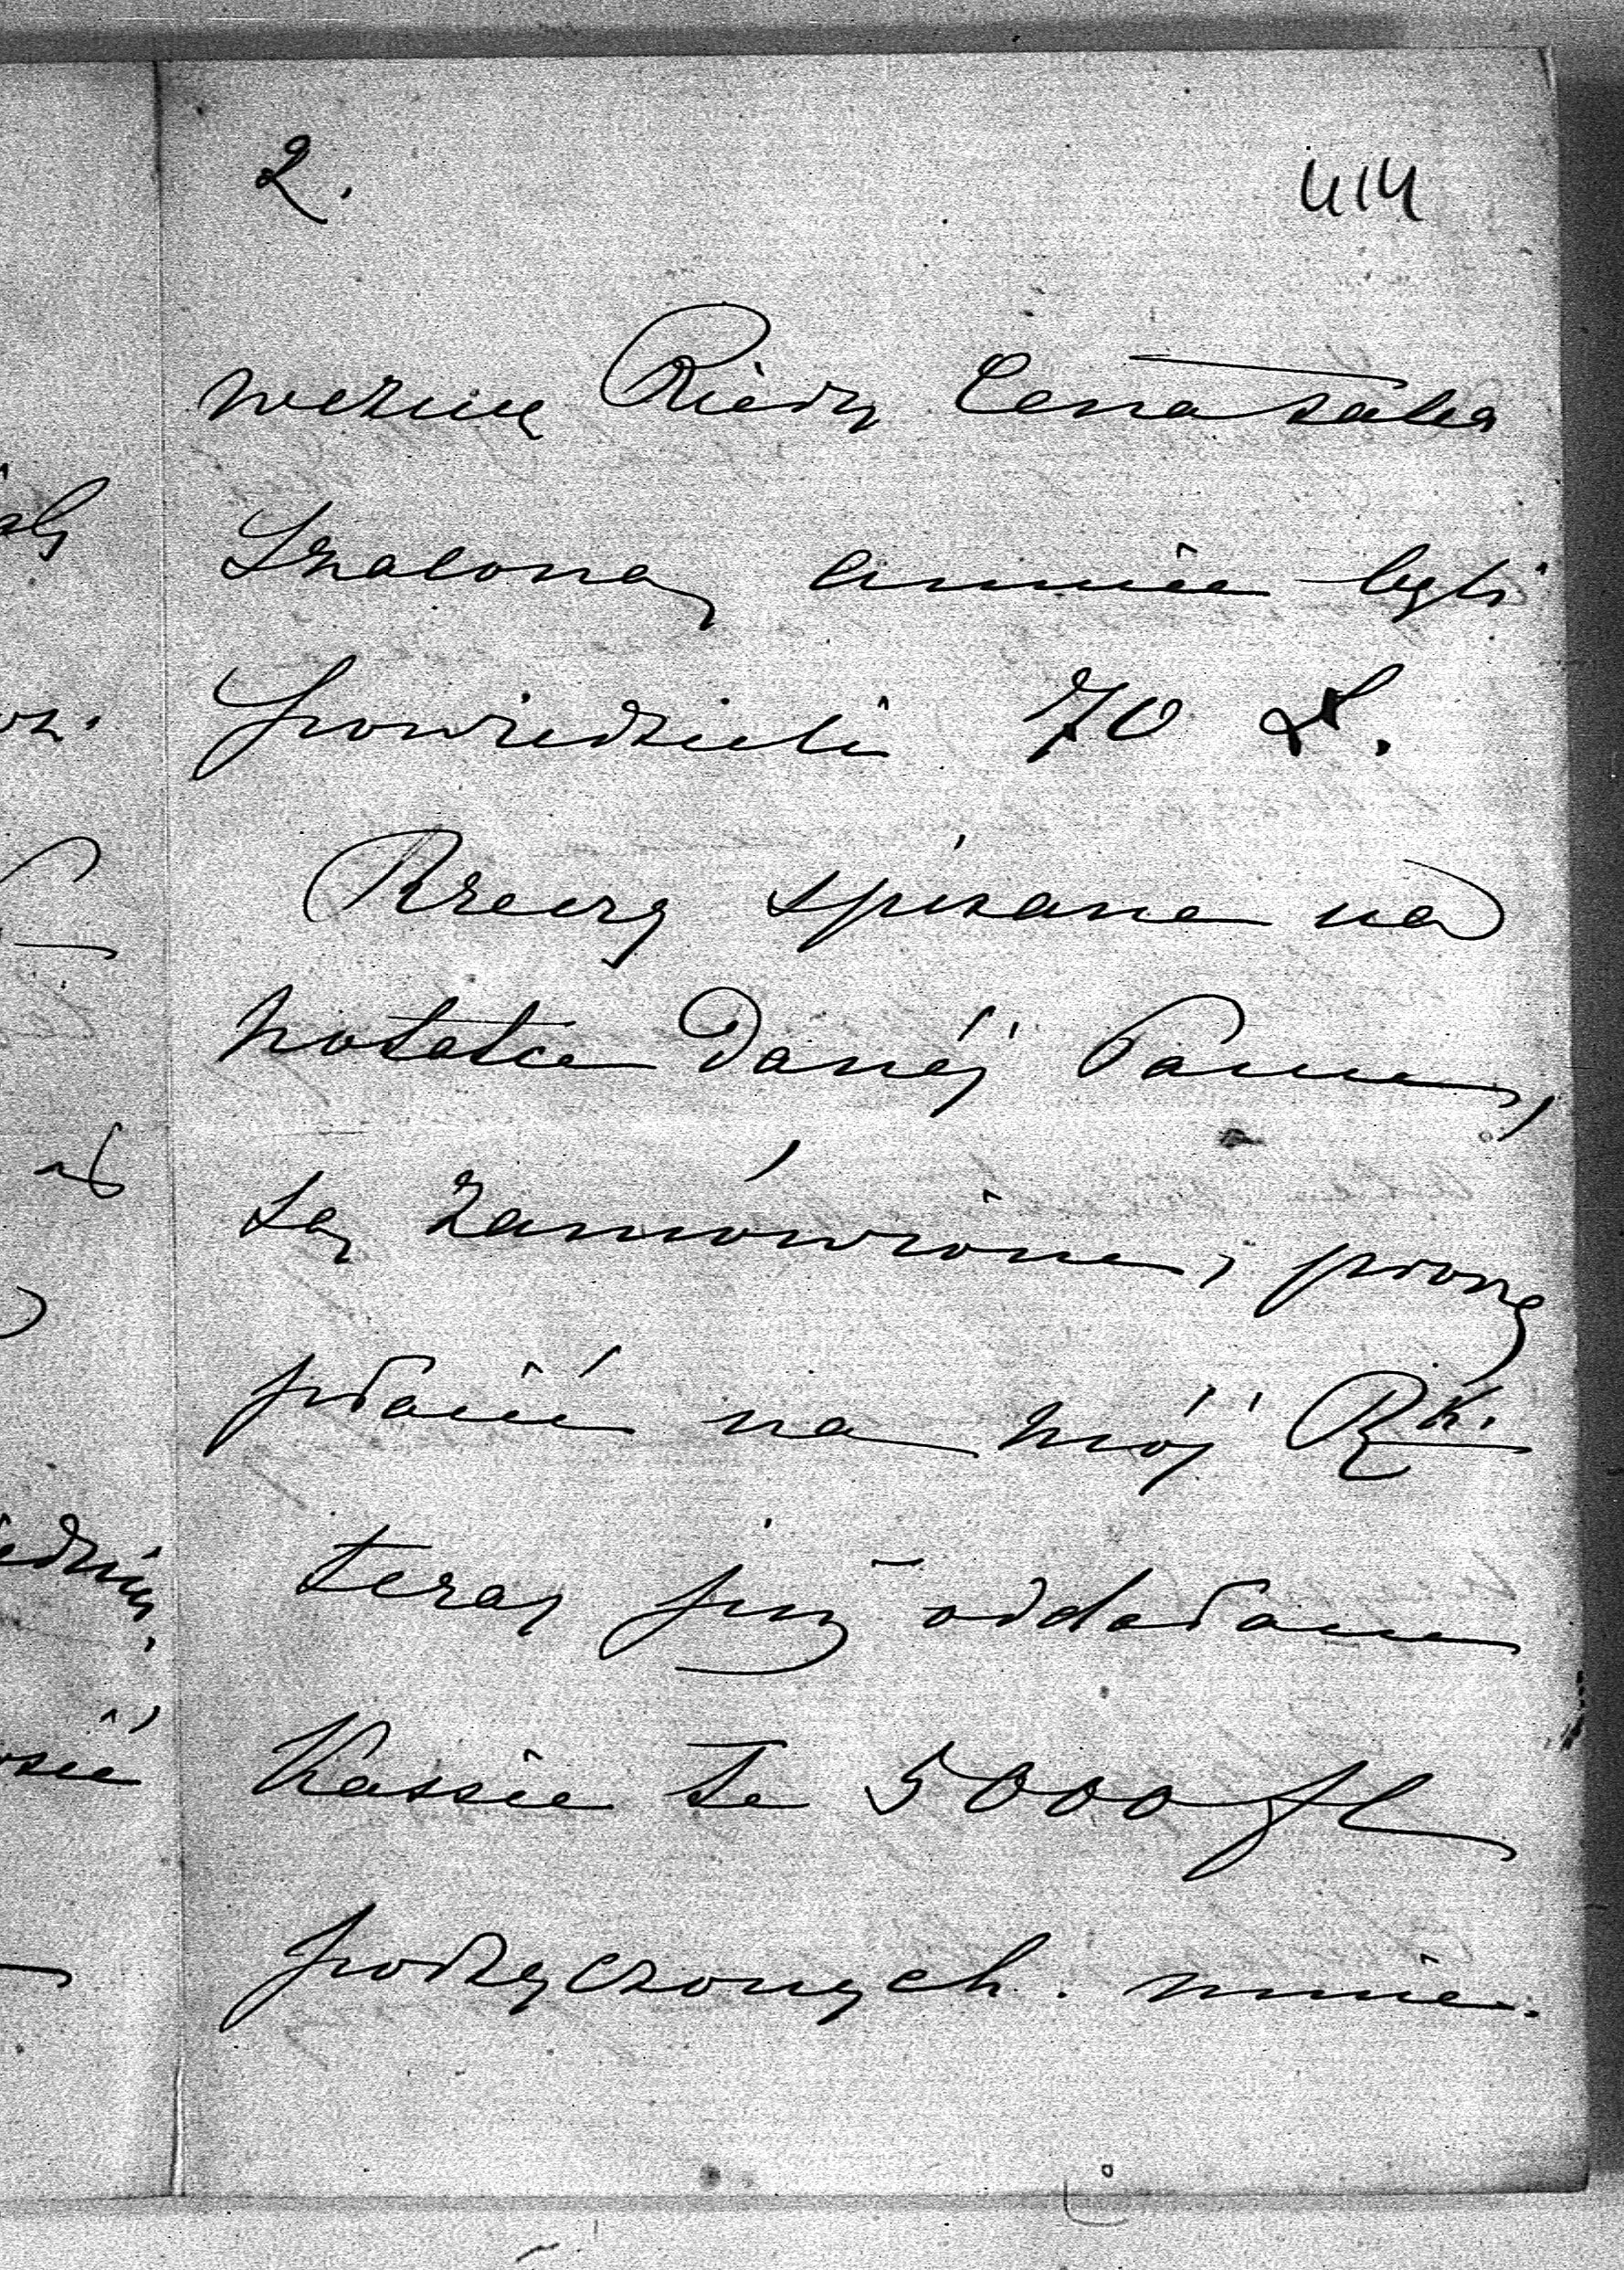 2.
414
wezmę Kiedy Cena taka
Szalona, a mnie byli
powiedzieli 70 £.
Rzeczy spisane na
notatce danéj Panu,
są zamówione, proszę
płacić na mój Rk.
teraz już oddałam
Kassie te 5000 fl
pożyczonych. mnie.